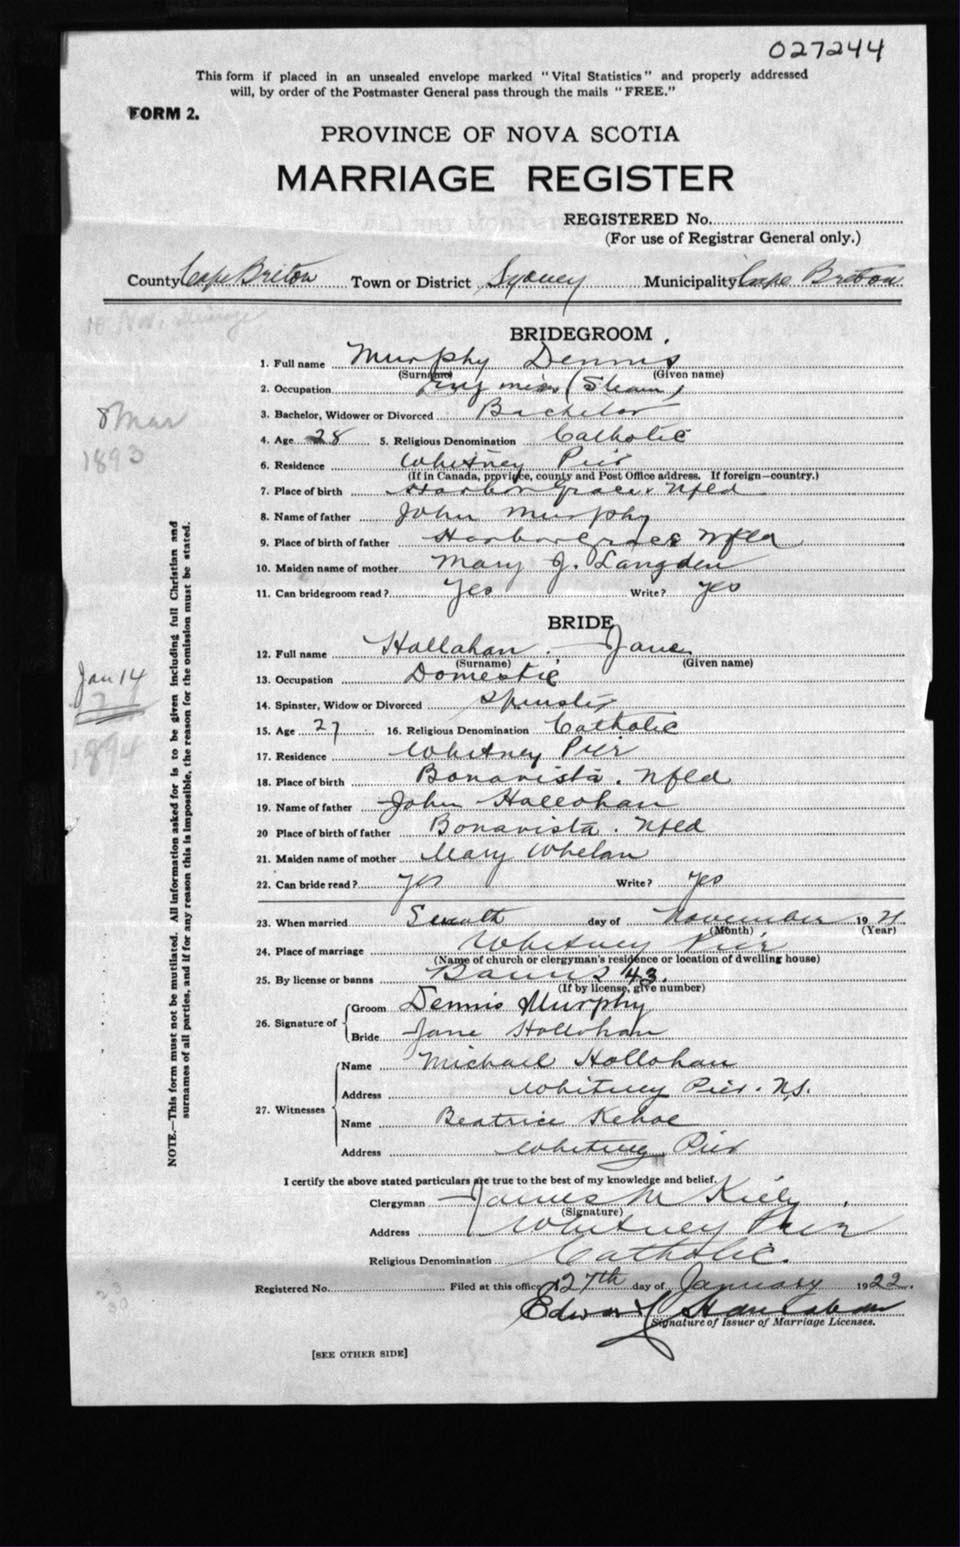 027244
This form if placed in an unsealed envelope marked "Vital Statistics" and properly addressed
will, by order of the Postmaster General pass through the mails "FREE."
FORM 2.
PROVINCE OF NOVA SCOTIA
MARRIAGE REGISTER
REGISTERED No.
(For use of Registrar General only.)
County Cape Breton Town or District Sydney Municipality Cape Breton
10 Nov.
BRIDEGROOM.
1. Full name Murphy Dennis
(Surname) (Given name)
2. Occupation (Steam)
3. Bachelor, Widower or Divorced Bachelor
8 Mar
1893
4. Age 28 5. Religious Denomination Catholic
6. Residence Whitney Pier
(If in Canada, province, county and Post Office address. If foreign—country.)
7. Place of birth Harbor Grace Nfld
8. Name of father John Murphy
9. Place of birth of father Harbor Grace Nfld
10. Maiden name of mother Mary J. Langden
11. Can bridegroom read? Yes Write? yes
BRIDE
12. Full name Hollahan Jane
(Surname) (Given name)
13. Occupation Domestic
Jan 14
7
1894
14. Spinster, Widow or Divorced Spinster
15. Age 27 16. Religious Denomination Catholic
17. Residence Whitney Pier
18. Place of birth Bonavista. Nfld
19. Name of father John Hollohan
20 Place of birth of father Bonavista. Nfld
21. Maiden name of mother Mary Whelan
22. Can bride read? yes Write? yes
23. When married day of November 1921
(Month) (Year)
24. Place of marriage Whitney Pier
(Name of church or clergyman's residence or location of dwelling house)
25. By license or banns Banns 43.
(If by license, give number)
26. Signature of Groom Dennis Murphy
Bride Jane Hollohan
27. Witnesses Name Michael Hollohan
Address Whitney Pier. N.S.
Name Beatrice Kehoe
Address Whitney Pier
NOTE.—This form must not be mutilated. All information asked for is to be given including full Christian and
surnames of all parties, and if for any reason this is impossible, the reason for the omission must be stated.
I certify the above stated particulars are true to the best of my knowledge and belief.
Clergyman James M Kiely
(Signature)
Address Whitney Pier
Religious Denomination Catholic.
Registered No. Filed at this office 27th day of January 1922.
Edward
Signature of Issuer of Marriage Licenses.
[SEE OTHER SIDE]